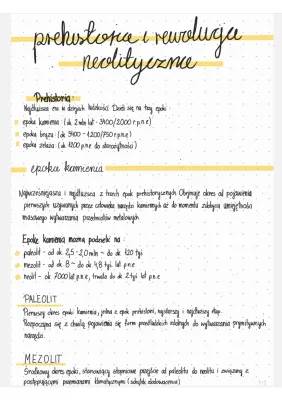 prehistoria i rewolucja
neolityczna
Prehistoria:
Najdłuższa era w dziejach ludzkości. Dzieli się na trzy epoki:
epoka kamienia (ok 2 mln lat - 3400/2000 r.p.n.e)
epoka brązu (ok 3400 - 1200/750 r.p.n.e)
epoka żelaza (ok 1200 p.n.e do starożytności)
epoka kamienia
Najwcześniejsza i najdłuższa z trzech epok prehistorycznych. Obejmuje okres od pojawienia
pierwszych używanych przez człowieka narzędzi kamiennych aż do momentu zdobycia umiejętności
masowego wytwarzania przedmiotów metalowych.
Epokę kamienia można podzielić na:
paleolit - od ok 2,5 - 2,0 mln - do ok 120 tyś
mezolit - od ok 8 - do ok 4,8 tyś lat p.n.e
neolit - ok 7000 lat p.n.e, trwała do ok 2 tyś lat p.n.e
PALEOLIT
Pierwszy okres epoki kamienia, jedna z epok prehistorii, najstarszy i najdłuższy etap.
Rozpoczyna się z chwilą pojawienia się form przedludzkich zdolnych do wytwarzania prymitywnych
narzędzi.
MEZOLIT
Środkowy okres epoki, stanowiący stopniowe przejście od paleolitu do neolitu i związany z
postępującymi przemianami klimatycznymi (schyłek zlodowacenia)